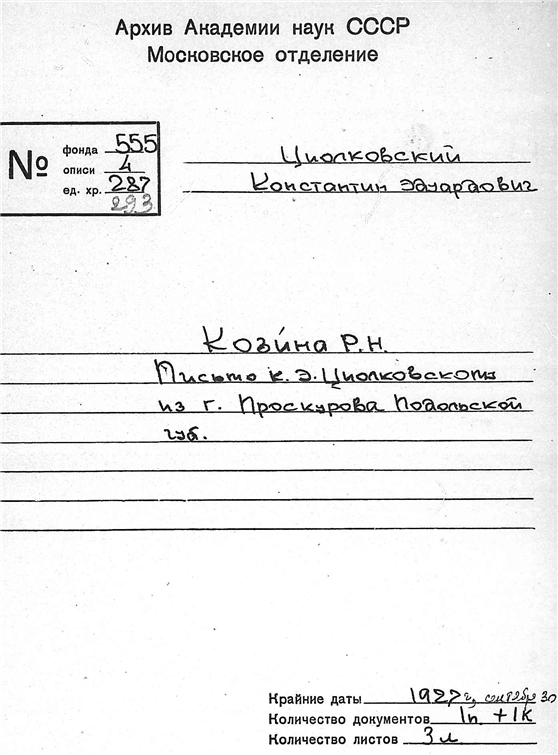 Архив Академии наук СССР
Московское отделение
№
фонда 555
описи 4
ед. хр. 287
293
Циолковский
Константин Эдуардович
Козина Р.Н.
Письмо К. Э. Циолковскому
из г. Проскурова Подольской
губ.
Крайние даты 1927 г, сентябрь 30
Количество документов 1п. + 1к
Количество листов 3 л